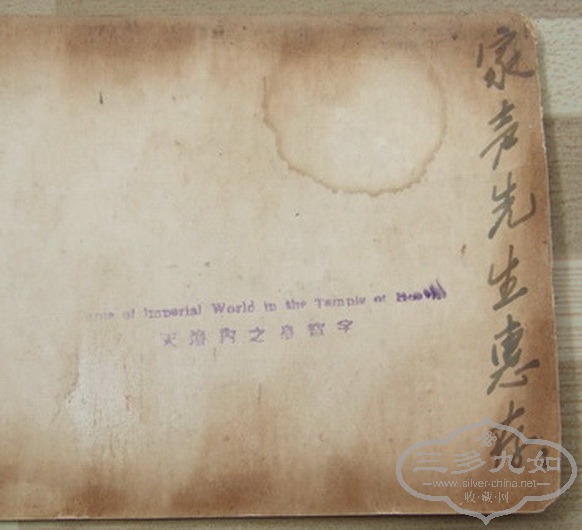 家声先生惠存
of Imperial World in the Temple of
天壇內之皇穹宇
三多九如
www.silver-china.net
收·藏·网